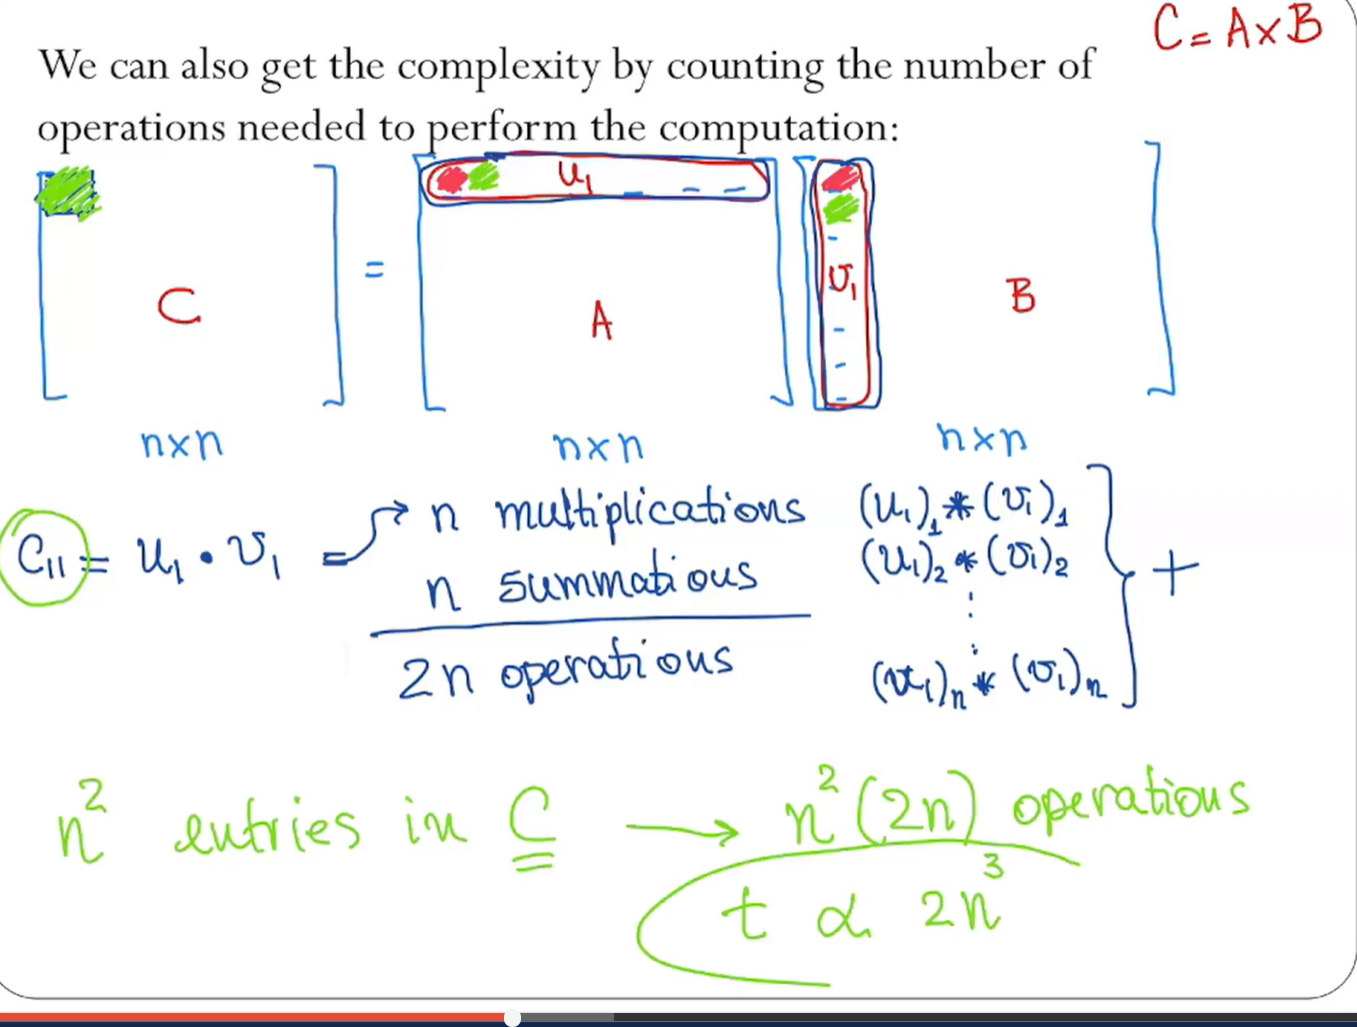 C = A x B
We can also get the complexity by counting the number of
operations needed to perform the computation:
C = A B
u₁
v₁
nxn nxn nxn
C₁₁ = u₁ • v₁ = → n multiplications (u₁)₁ * (v₁)₁
n summations (u₁)₂ * (v₁)₂ +
⋮
2n operations (u₁)ₙ * (v₁)ₙ
n² entries in C → n² (2n) operations
t α 2n³